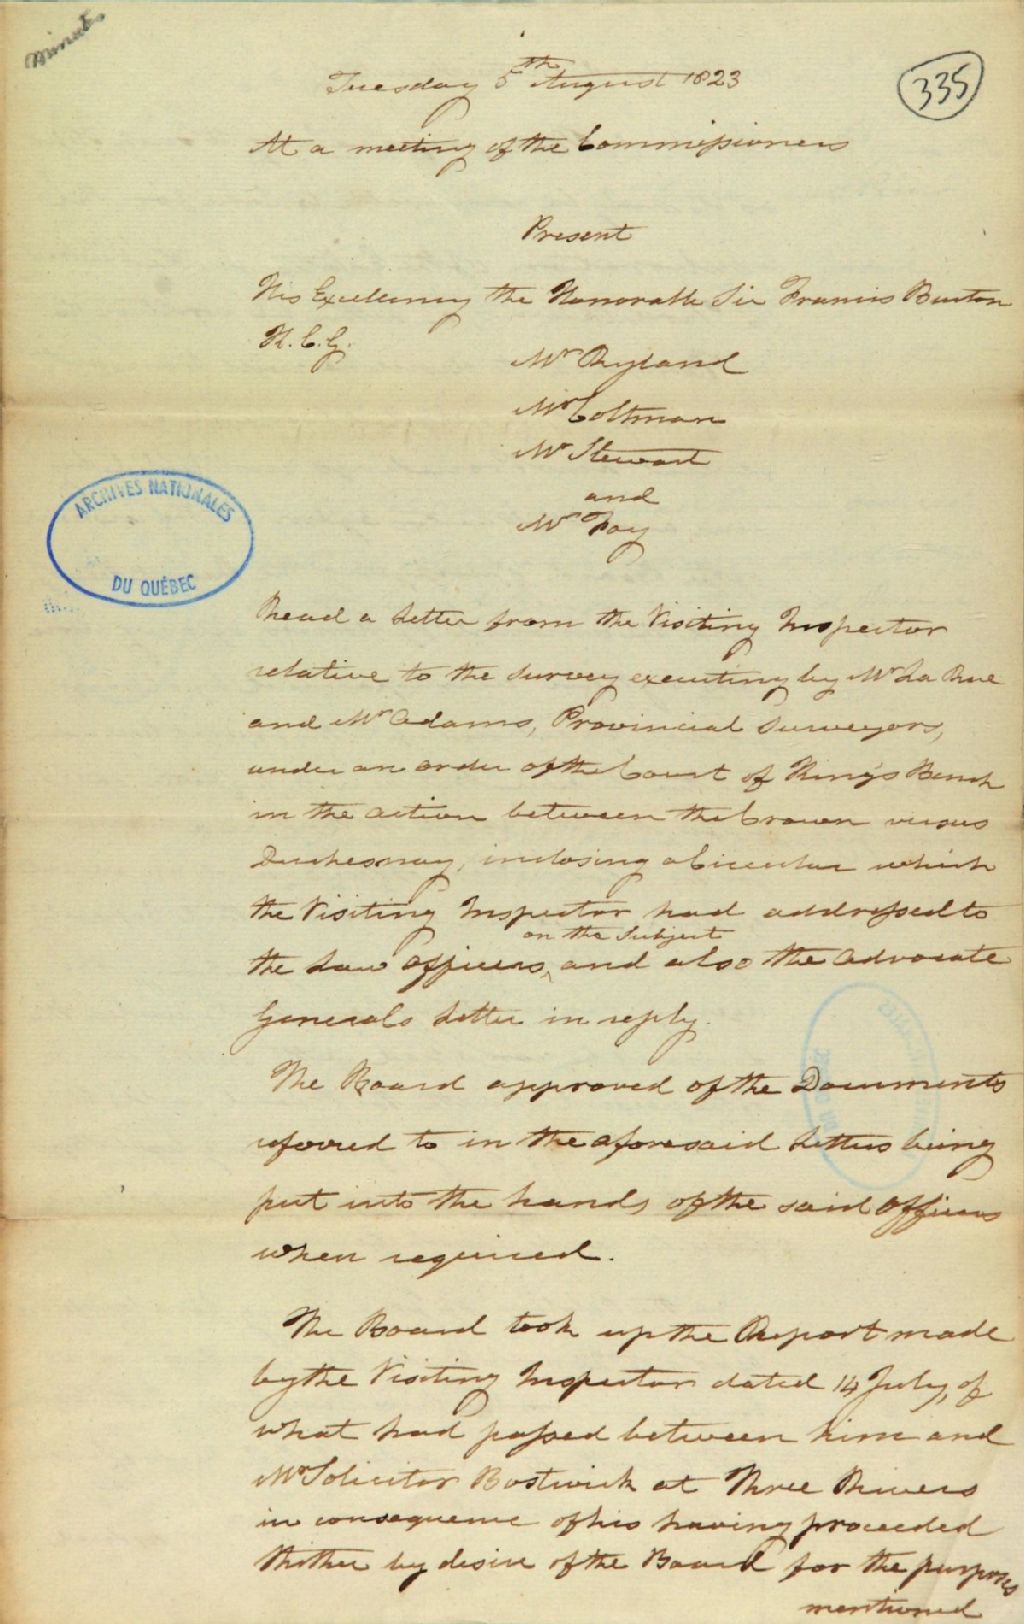 Minutes
335
Tuesday 5th August 1823
At a meeting of the Commissioners
Present
His Excellency the Honorable Sir Francis Burton
K.C.G.
Mr Ryland
Mr Coltman
Mr Stewart
and
Mr Foy
ARCHIVES NATIONALES
DU QUÉBEC
Read a Letter from the Visiting Inspector
relative to the survey executing by Mr La Rue
and Mr Adams, Provincial Surveyors,
under an order of the Court of King's Bench
in the action between the Crown versus
Duchesnay, inclosing a Circular which
the Visiting Inspector had addressed to
on the Subject
the Law Officers, and also the Advocate
Generals Letter in reply.
The Board approved of the Documents
referred to in the aforesaid Letters being
put into the hands of the said Officers
when required.
The Board took up the Report made
by the Visiting Inspector dated 14 July, of
what had passed between him and
Mr Solicitor Bostwick at Three Rivers
in consequence of his having proceeded
thither by desire of the Board for the purposes
mentioned